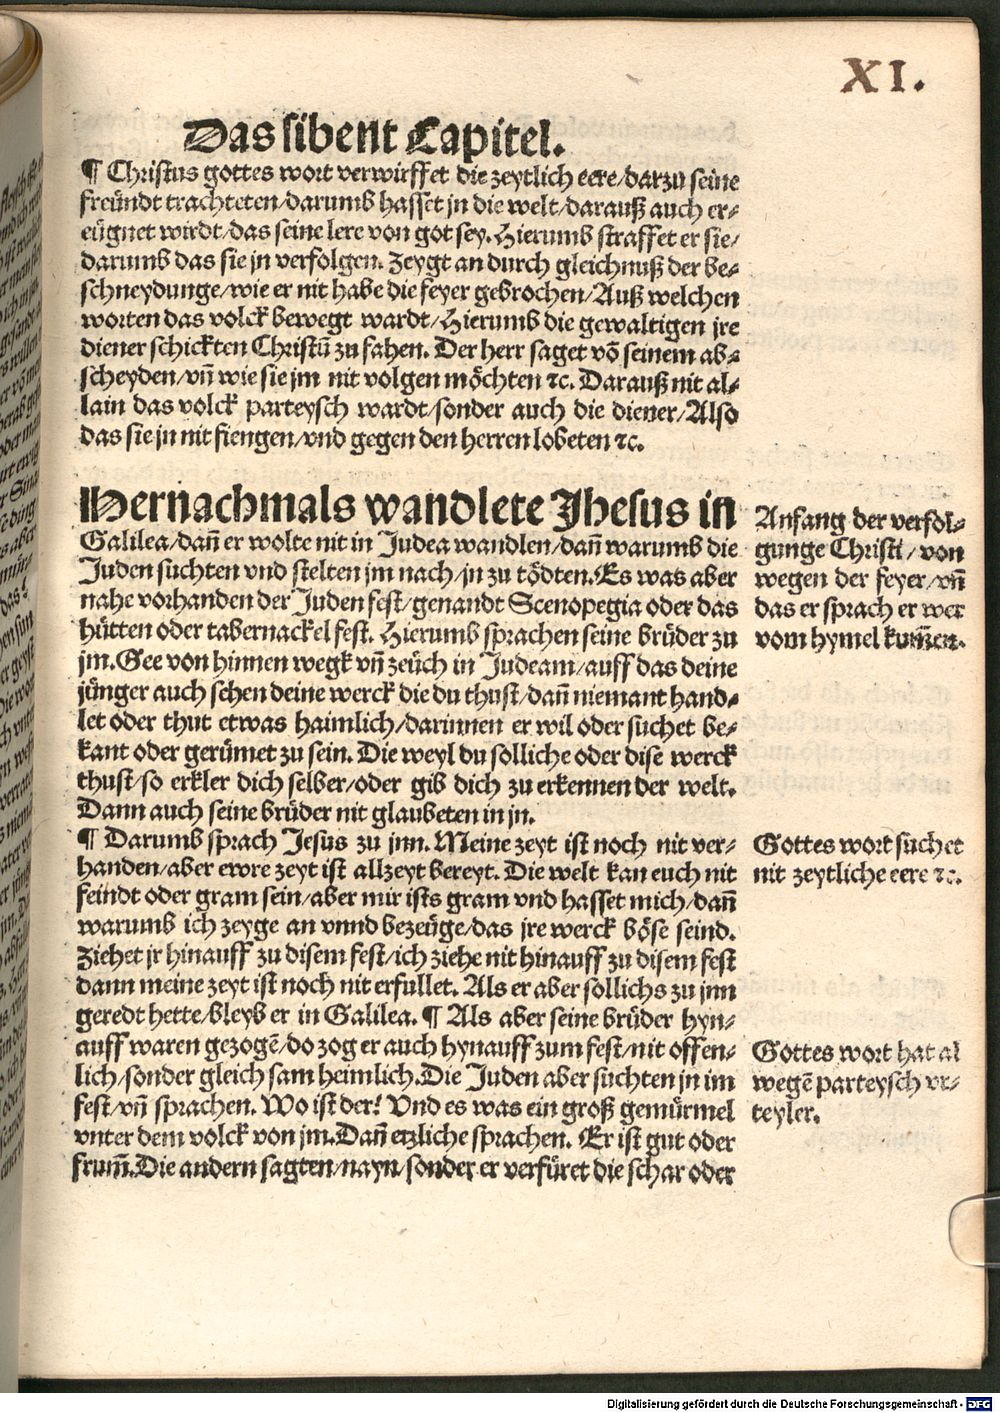 XI.
Das sibent Capitel.
¶ Christus gottes wort verwirffet die zeytlich eere/darzu seine
freündt trachteten/darumb hasset jn die welt/darauß auch er⸗
eügnet wirdt/das seine lere von got sey. Hierumb straffet er sie/
darumb das sie jn verfolgen. Zeygt an durch gleichnuß der be⸗
schneydunge/wie er nit habe die feyer gebrochen/Auß welchen
worten das volck bewegt wardt/Hierumb die gewaltigen jre
diener schickten Christū zu fahen. Der herr saget vō seinem ab⸗
scheyden/vn̄ wie sie jm nit volgen möchten ꝛc. Darauß nit al⸗
lain das volck parteysch wardt/sonder auch die diener/Also
das sie jn nit fiengen/vnd gegen den herren lobeten ꝛc.
Hernachmals wandlete Jhesus in
Galilea/dan̄ er wolte nit in Judea wandlen/dan̄ warumb die
Juden suchten vnd stelten jm nach/jn zu tödten. Es was aber
nahe vorhanden der Juden fest/genandt Scenopegia oder das
hütten oder tabernackel fest. Hierumb sprachen seine brüder zu
jm. Gee von hinnen wegk vn̄ zeüch in Judeam/auff das deine
jünger auch sehen deine werck die du thust/dan̄ niemant hand⸗
let oder thut etwas haimlich/darinnen er wil oder suchet be⸗
kant oder gerümet zu sein. Die weyl du solliche oder dise werck
thust/so erkler dich selber/oder gib dich zu erkennen der welt.
Dann auch seine brüder nit glaubeten in jn.
¶ Darumb sprach Jesus zu jnn. Meine zeyt ist noch nit ver⸗
handen/aber ewre zeyt ist allzeyt bereyt. Die welt kan euch nit
feindt oder gram sein/aber mir ists gram vnd hasset mich/dan̄
warumb ich zeyge an vnnd bezeüge/das jre werck böse seind.
Ziehet jr hinauff zu disem fest/ich ziehe nit hinauff zu disem fest
dann meine zeyt ist noch nit erfullet. Als er aber sollichs zu jnn
geredt hette/bleyb er in Galilea. ¶ Als aber seine brüder hyn⸗
auff waren gezogē/do zog er auch hynauff zum fest/nit offen⸗
lich/sonder gleich sam heimlich. Die Juden aber suchten jn im
fest/vn̄ sprachen. Wo ist der? Vnd es was ein groß gemürmel
vnter dem volck von jm. Dan̄ etzliche sprachen. Er ist gut oder
frum̄. Die andern sagten/nayn/sonder er verfüret die schar oder
Anfang der verfol⸗
gunge Christi/von
wegen der feyer/vn̄
das er sprach er wer
vom hymel kum̄en.
Gottes wort suchet
nit zeytliche eere ꝛc.
Gottes wort hat al
wegē parteysch vr⸗
teyler.
Digitalisierung gefördert durch die Deutsche Forschungsgemeinschaft - DFG